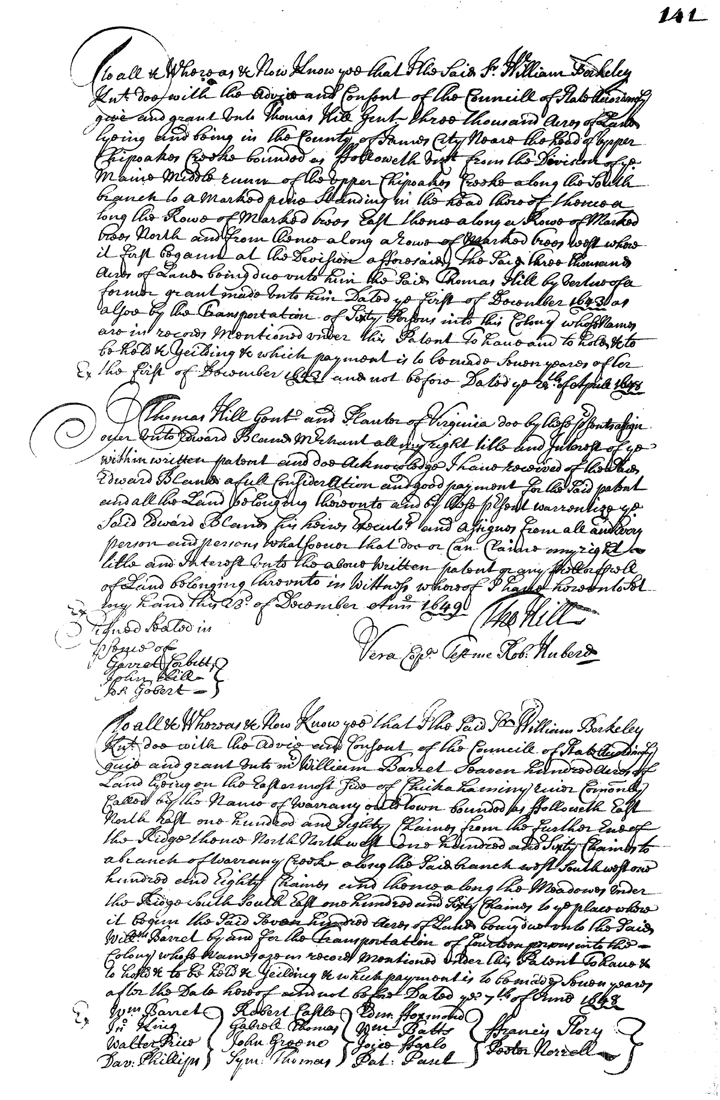 141
To all &c Whereas &c Now Know yee that I the Said Sr. William Berkeley
Knt. doe with the Advice and Consent of the Councill of State Accordingly
give and grant Unto Thomas Hill Gent three thousand Acres of Land
lyeing and being in the County of James City Neare the head of upper
Chipoakes Creeke bounded as followeth Vizt from the Division of ye
Maine Middle runn of the upper Chipoakes Creeke along the South
branch to a Marked pine Standing in the head there of thence a
long the Rowe of Marked trees East thence along a Rowe of Marked
trees North and from thence along a rowe of Marked trees west where
it first begann at the Division afforesaid, The Said three thousand
Acres of Land being due unto him the Said Thomas Hill by vertue of a
former grant made Unto him Dated ye first of December 1643 as
alsoe by the Transportation of Sixty Persons into this Colony whose Names
are in records Mentioned under this Patent To have and to hold &c to
be held &c Yeilding &c which payment is to be made Seven yeares after
Ex the first of December 1643 and not before Dated ye of Aprill 1648
I Thomas Hill Gent and Planter of Virginia doe by these psents assign
over Unto Edward Bland Mrchant all my right title and Interest of ye
within written patent and doe Acknowledge I have received of the Said
Edward Bland a full Consideration and good payment for the Said patent
and all the Land belonging thereunto and by these psent warrentize ye
Said Edward Bland his heires Executrs and assignes from all and every
person and persons whatsoever that doe or Can Claime any right
title and Interest Unto the above written patent or any
of Land belonging thereunto in Wittness whereof I have hereunto Set
Ex my hand this 23d. of December Ano 1649 Tho Hill
Signed Sealed in
psence of
Vera Copa Teste me Rob. Huberd
Garret Corbitt
John Hill
Gobert
To all &c Whereas &c Now Know yee that I the Said Sr. William Berkeley
Knt. doe with the Advice and Consent of the Councill of State Accordingly
give and grant Unto mr William Barret Seaven hundred Acres of
Land lyeing on the Eastermost Side of Chickahaminy river Comonly
Called by the Name of Warrany ould town bounded as followeth East
North East one hundred and Eighty Chaines from the further End of
the Ridge thence North North west One hundred and Sixty Chaines to
a branch of Warrany Creeke along the Said branch west South west one
hundred and Eighty Chaines and thence along the Meadowes Under
the Ridge South South East one hundred and Sixty Chaines to ye place where
it begun the Said Seven hundred Acres of Land being due unto the Said
Willm. Barret by and for the Transportation of fourteen persons into the
Colony whose Names are in record Mentioned Under this Patent To have &c
to hold &c to be held &c Yeilding &c which payment is to be made Seven yeares
after the Date hereof and not before Dated ye 7th of June 1648
Ex Wm Barret Robert Castle Edw. Hayward
Jno. King Gabriell Thomas Wm. Batts Francis Flory
Walter Price John Greene Joice Harlo Pester Norrell
Dav: Phillips Sym: Thomas Pat: Paul